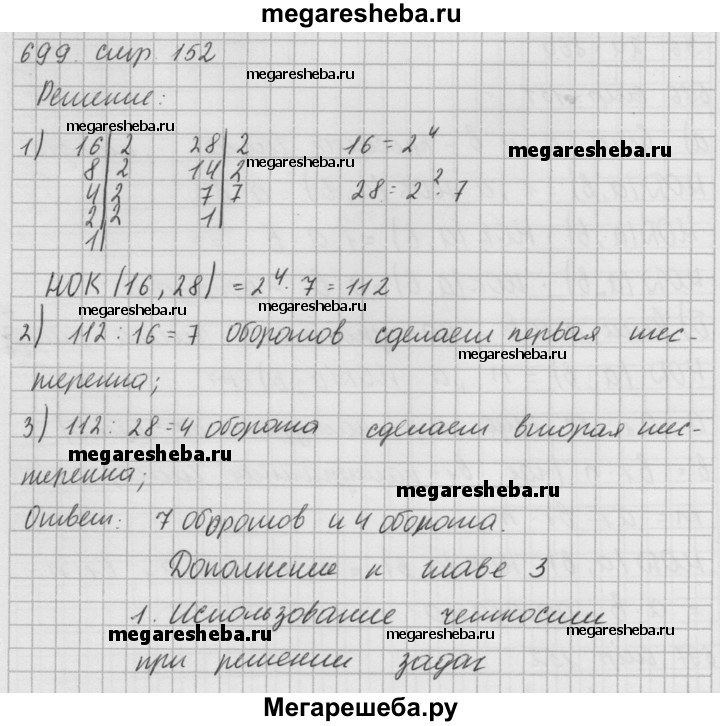 megaresheba.ru
699. стр. 152
megaresheba.ru
Решение:
megaresheba.ru
1) 16 | 2 28 | 2 16 = 2^4
megaresheba.ru
8 | 2 14 | 2
4 | 2 7 | 7 28 = 2^2 · 7
2 | 2 1 |
1 |
НОК (16, 28) = 2^4 · 7 = 112
megaresheba.ru megaresheba.ru
2) 112 : 16 = 7 оборотов сделает первая шес-
megaresheba.ru
теренка;
3) 112 : 28 = 4 оборота сделает вторая шес-
megaresheba.ru
теренка;
megaresheba.ru
Ответ: 7 оборотов и 4 оборота.
Дополнение к главе 3
1. Использование четности
megaresheba.ru megaresheba.ru megaresheba.ru
при решении задач
Мегарешеба.ру